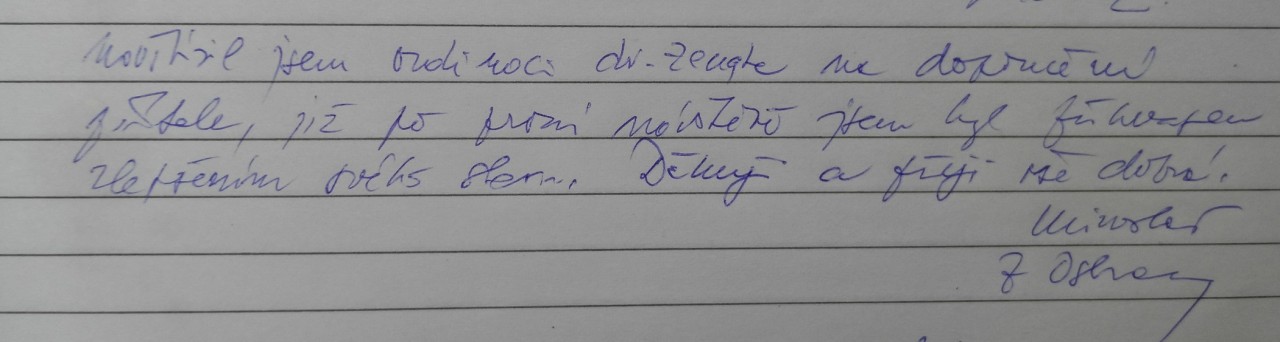 navštívil jsem ordinaci dr. Zengha na doporučení
přítele, již po první návštěvě jsem byl překvapen
zlepšením svého stavu. Děkuji a přeji vše dobré.
Miroslav
z Ostravy